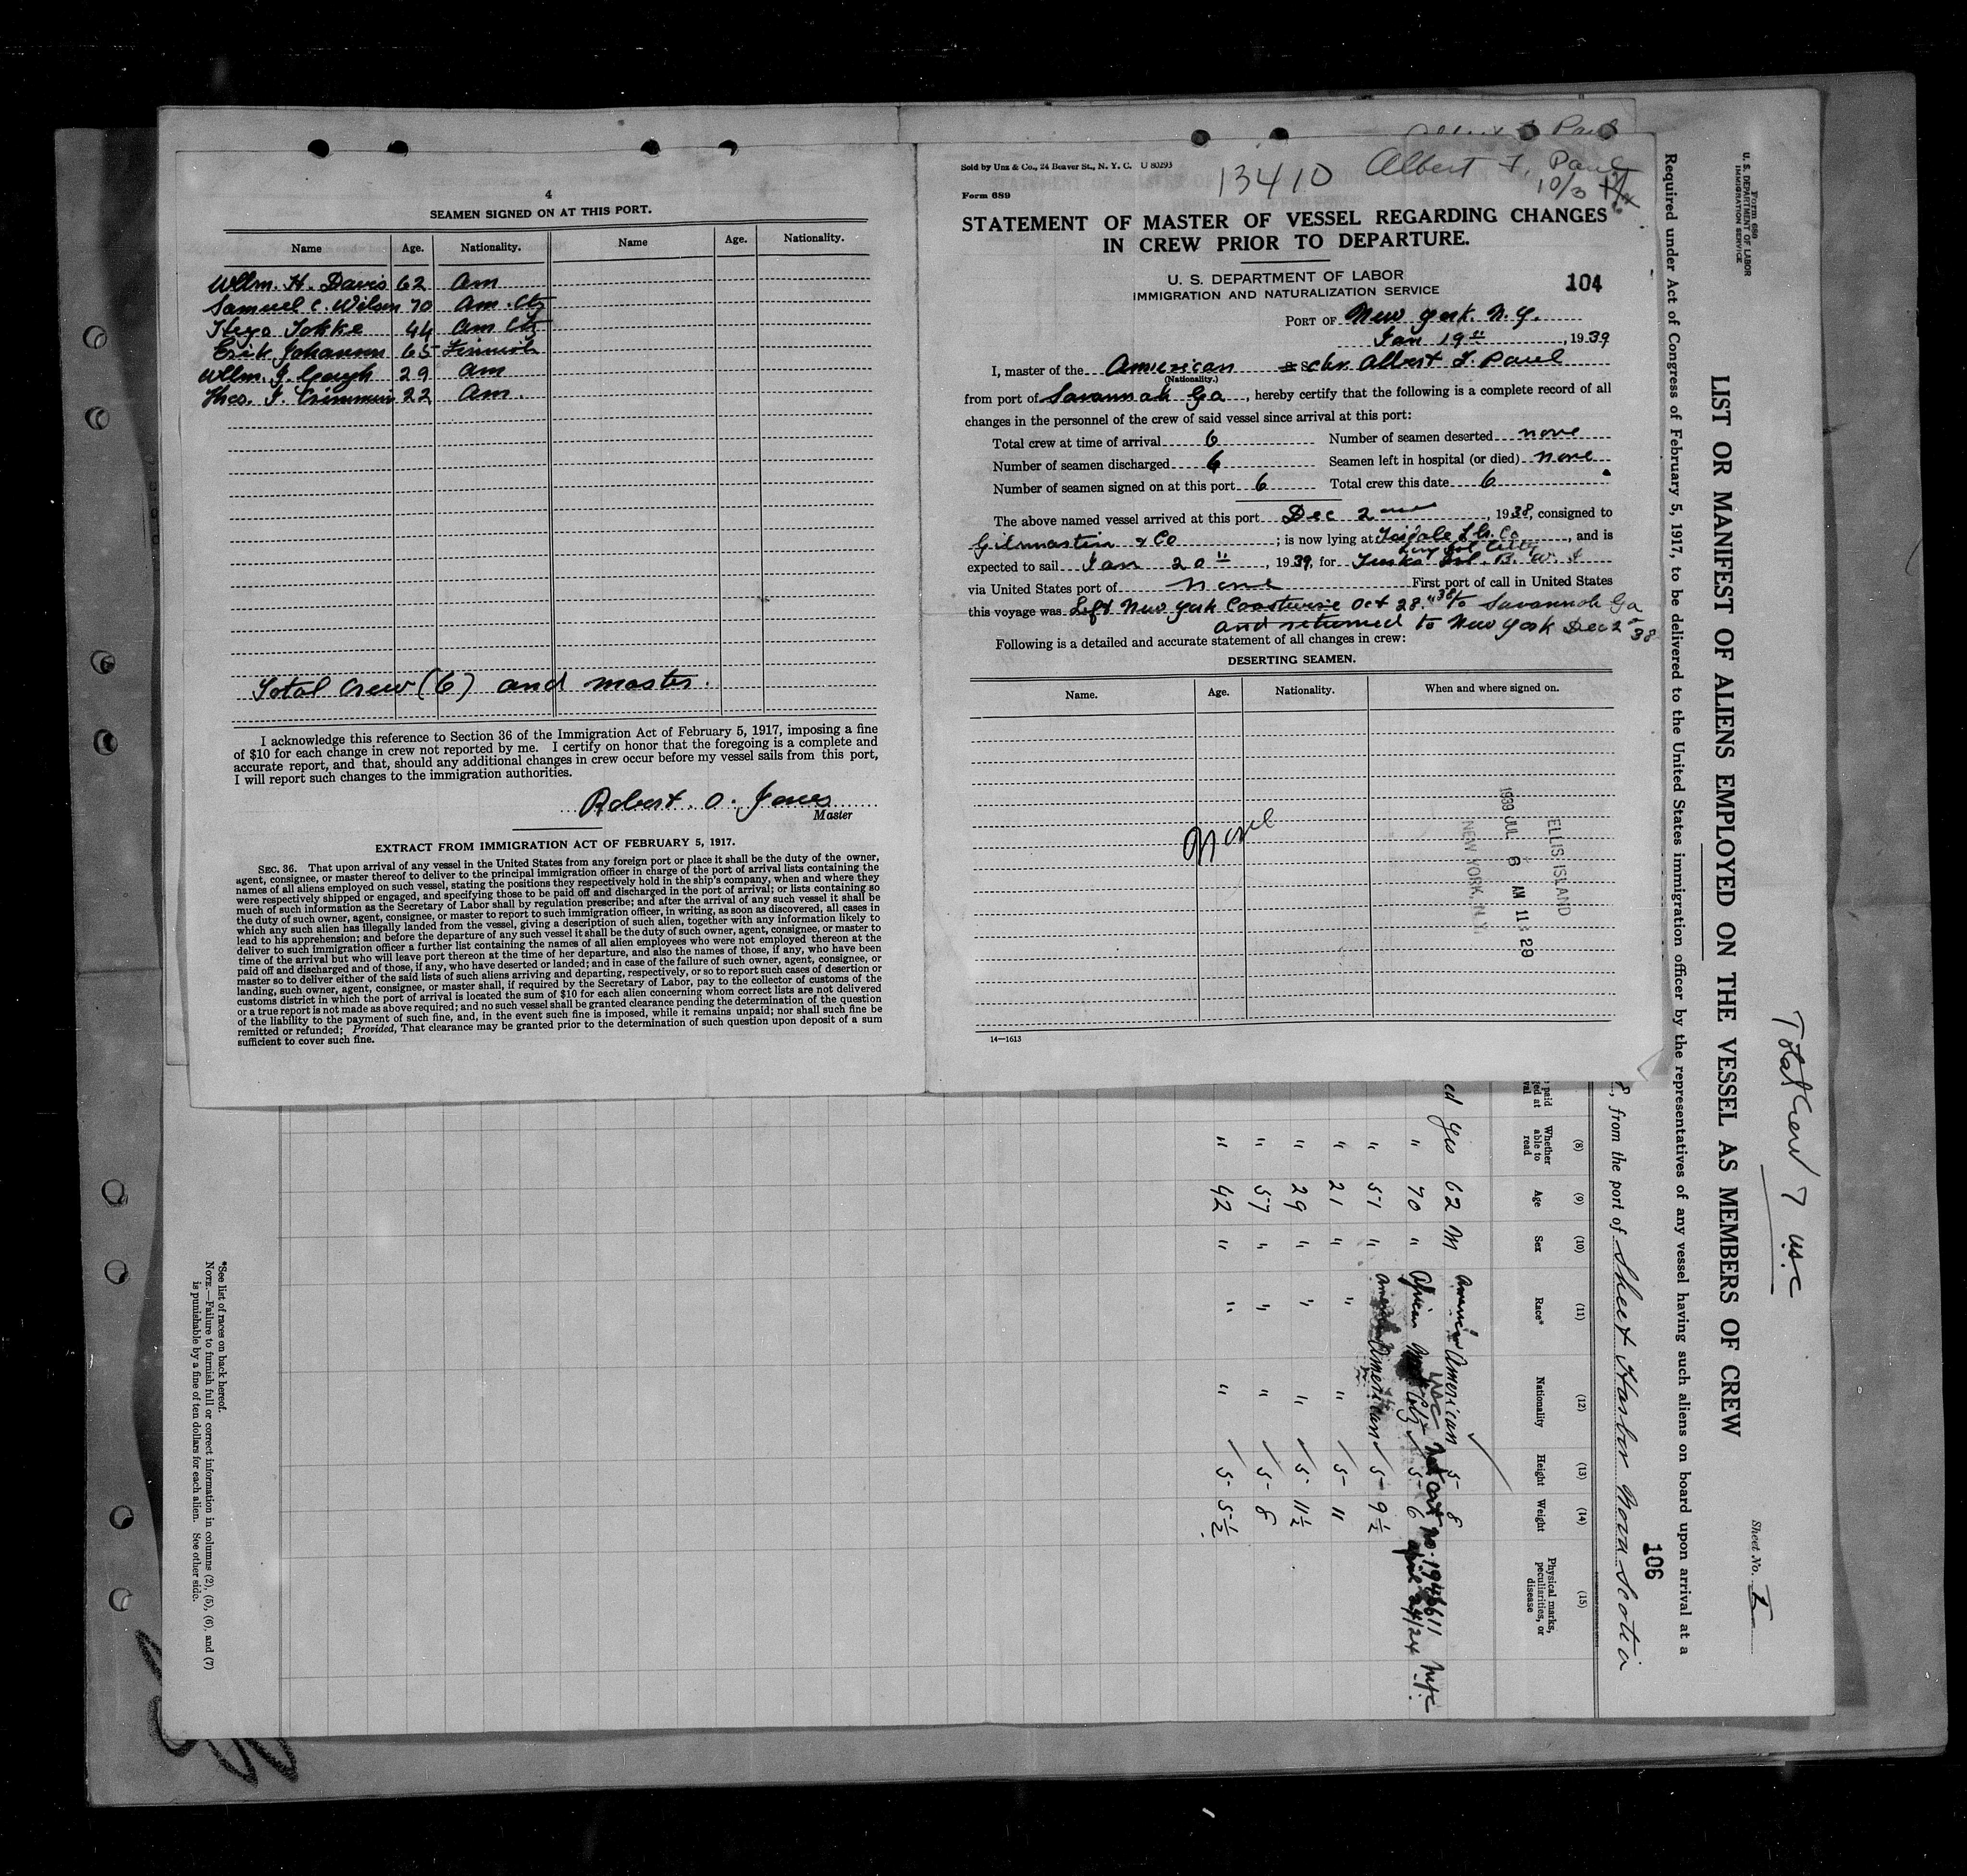 4
SEAMEN SIGNED ON AT THIS PORT.
Name Age. Nationality. Name Age. Nationality.
Wllm. H. Davis 62 Am
Samuel C. Wilson 70 Am. Ctz
44 Am Ctz
Erik Johanson 65
Wllm. J. Gough 29 Am
Theo. J. 22 Am.
Total Crew (6) and master.
I acknowledge this reference to Section 36 of the Immigration Act of February 5, 1917, imposing a fine
of $10 for each change in crew not reported by me. I certify on honor that the foregoing is a complete and
accurate report, and that, should any additional changes in crew occur before my vessel sails from this port,
I will report such changes to the immigration authorities.
Robert. O. Jones
Master
EXTRACT FROM IMMIGRATION ACT OF FEBRUARY 5, 1917.
SEC. 36. That upon arrival of any vessel in the United States from any foreign port or place it shall be the duty of the owner,
agent, consignee, or master thereof to deliver to the principal immigration officer in charge of the port of arrival lists containing the
names of all aliens employed on such vessel, stating the positions they respectively hold in the ship's company, when and where they
were respectively shipped or engaged, and specifying those to be paid off and discharged in the port of arrival; or lists containing so
much of such information as the Secretary of Labor shall by regulation prescribe; and after the arrival of any such vessel it shall be
the duty of such owner, agent, consignee, or master to report to such immigration officer, in writing, as soon as discovered, all cases in
which any such alien has illegally landed from the vessel, giving a description of such alien, together with any information likely to
lead to his apprehension; and before the departure of any such vessel it shall be the duty of such owner, agent, consignee, or master to
deliver to such immigration officer a further list containing the names of all alien employees who were not employed thereon at the
time of the arrival but who will leave port thereon at the time of her departure, and also the names of those, if any, who have been
paid off and discharged and of those, if any, who have deserted or landed; and in case of the failure of such owner, agent, consignee, or
master so to deliver either of the said lists of such aliens arriving and departing, respectively, or so to report such cases of desertion or
landing, such owner, agent, consignee, or master shall, if required by the Secretary of Labor, pay to the collector of customs of the
customs district in which the port of arrival is located the sum of $10 for each alien concerning whom correct lists are not delivered
or a true report is not made as above required; and no such vessel shall be granted clearance pending the determination of the question
of the liability to the payment of such fine, and, in the event such fine is imposed, while it remains unpaid; nor shall such fine be
remitted or refunded; Provided, That clearance may be granted prior to the determination of such question upon deposit of a sum
sufficient to cover such fine.
Sold by Unz & Co., 24 Beaver St., N. Y. C. U 80293
13410 Albert F. Paul
10/3
Form 689
STATEMENT OF MASTER OF VESSEL REGARDING CHANGES
IN CREW PRIOR TO DEPARTURE.
U. S. DEPARTMENT OF LABOR
IMMIGRATION AND NATURALIZATION SERVICE
104
PORT OF New York. N. Y.
Jan 19", 1939
I, master of the American Schr. Albert F. Paul
(Nationality.)
from port of Savannah Ga, hereby certify that the following is a complete record of all
changes in the personnel of the crew of said vessel since arrival at this port:
Total crew at time of arrival 6 Number of seamen deserted none
Number of seamen discharged 6 Seamen left in hospital (or died) none
Number of seamen signed on at this port 6 Total crew this date 6
The above named vessel arrived at this port Dec 2nd, 1938, consigned to
Gilmartin & Co; is now lying at , and is
expected to sail Jan 20", 1939, for Turks Isl. B. W. I
via United States port of none First port of call in United States
this voyage was Left New York Coastwise Oct 28." 38 to Savannah Ga
and returned to New York Dec 2" 38
Following is a detailed and accurate statement of all changes in crew:
DESERTING SEAMEN.
Name. Age. Nationality. When and where signed on.
None
ELLIS ISLAND
1939 JUL 6 AM 11 29
NEW YORK, N.Y.
14—1613
Form 680
U. S. DEPARTMENT OF LABOR
IMMIGRATION SERVICE
Total Crew 7 usc
Sheet No. 1
LIST OR MANIFEST OF ALIENS EMPLOYED ON THE VESSEL AS MEMBERS OF CREW
Required under Act of Congress of February 5, 1917, to be delivered to the United States immigration officer by the representatives of any vessel having such aliens on board upon arrival at a
106
, from the port of Sheet Harbor Nova Scotia
(8) (9) (10) (11) (12) (13) (14) (15)
Whether able to read Age Sex Race* Nationality Height Weight Physical marks, peculiarities, or disease
Yes 62 M American American 5- 8
" 70 " African 5- 6
" 51 " American American 5- 9½
" 21 " " " 5- 11
" 29 " " " 5- 11½
" 57 " " " 5- 8
" 42 " " " 5- 5½
*See list of races on back hereof.
NOTE.—Failure to furnish full or correct information in columns (2), (5), (6), and (7)
is punishable by a fine of ten dollars for each alien. See other side.